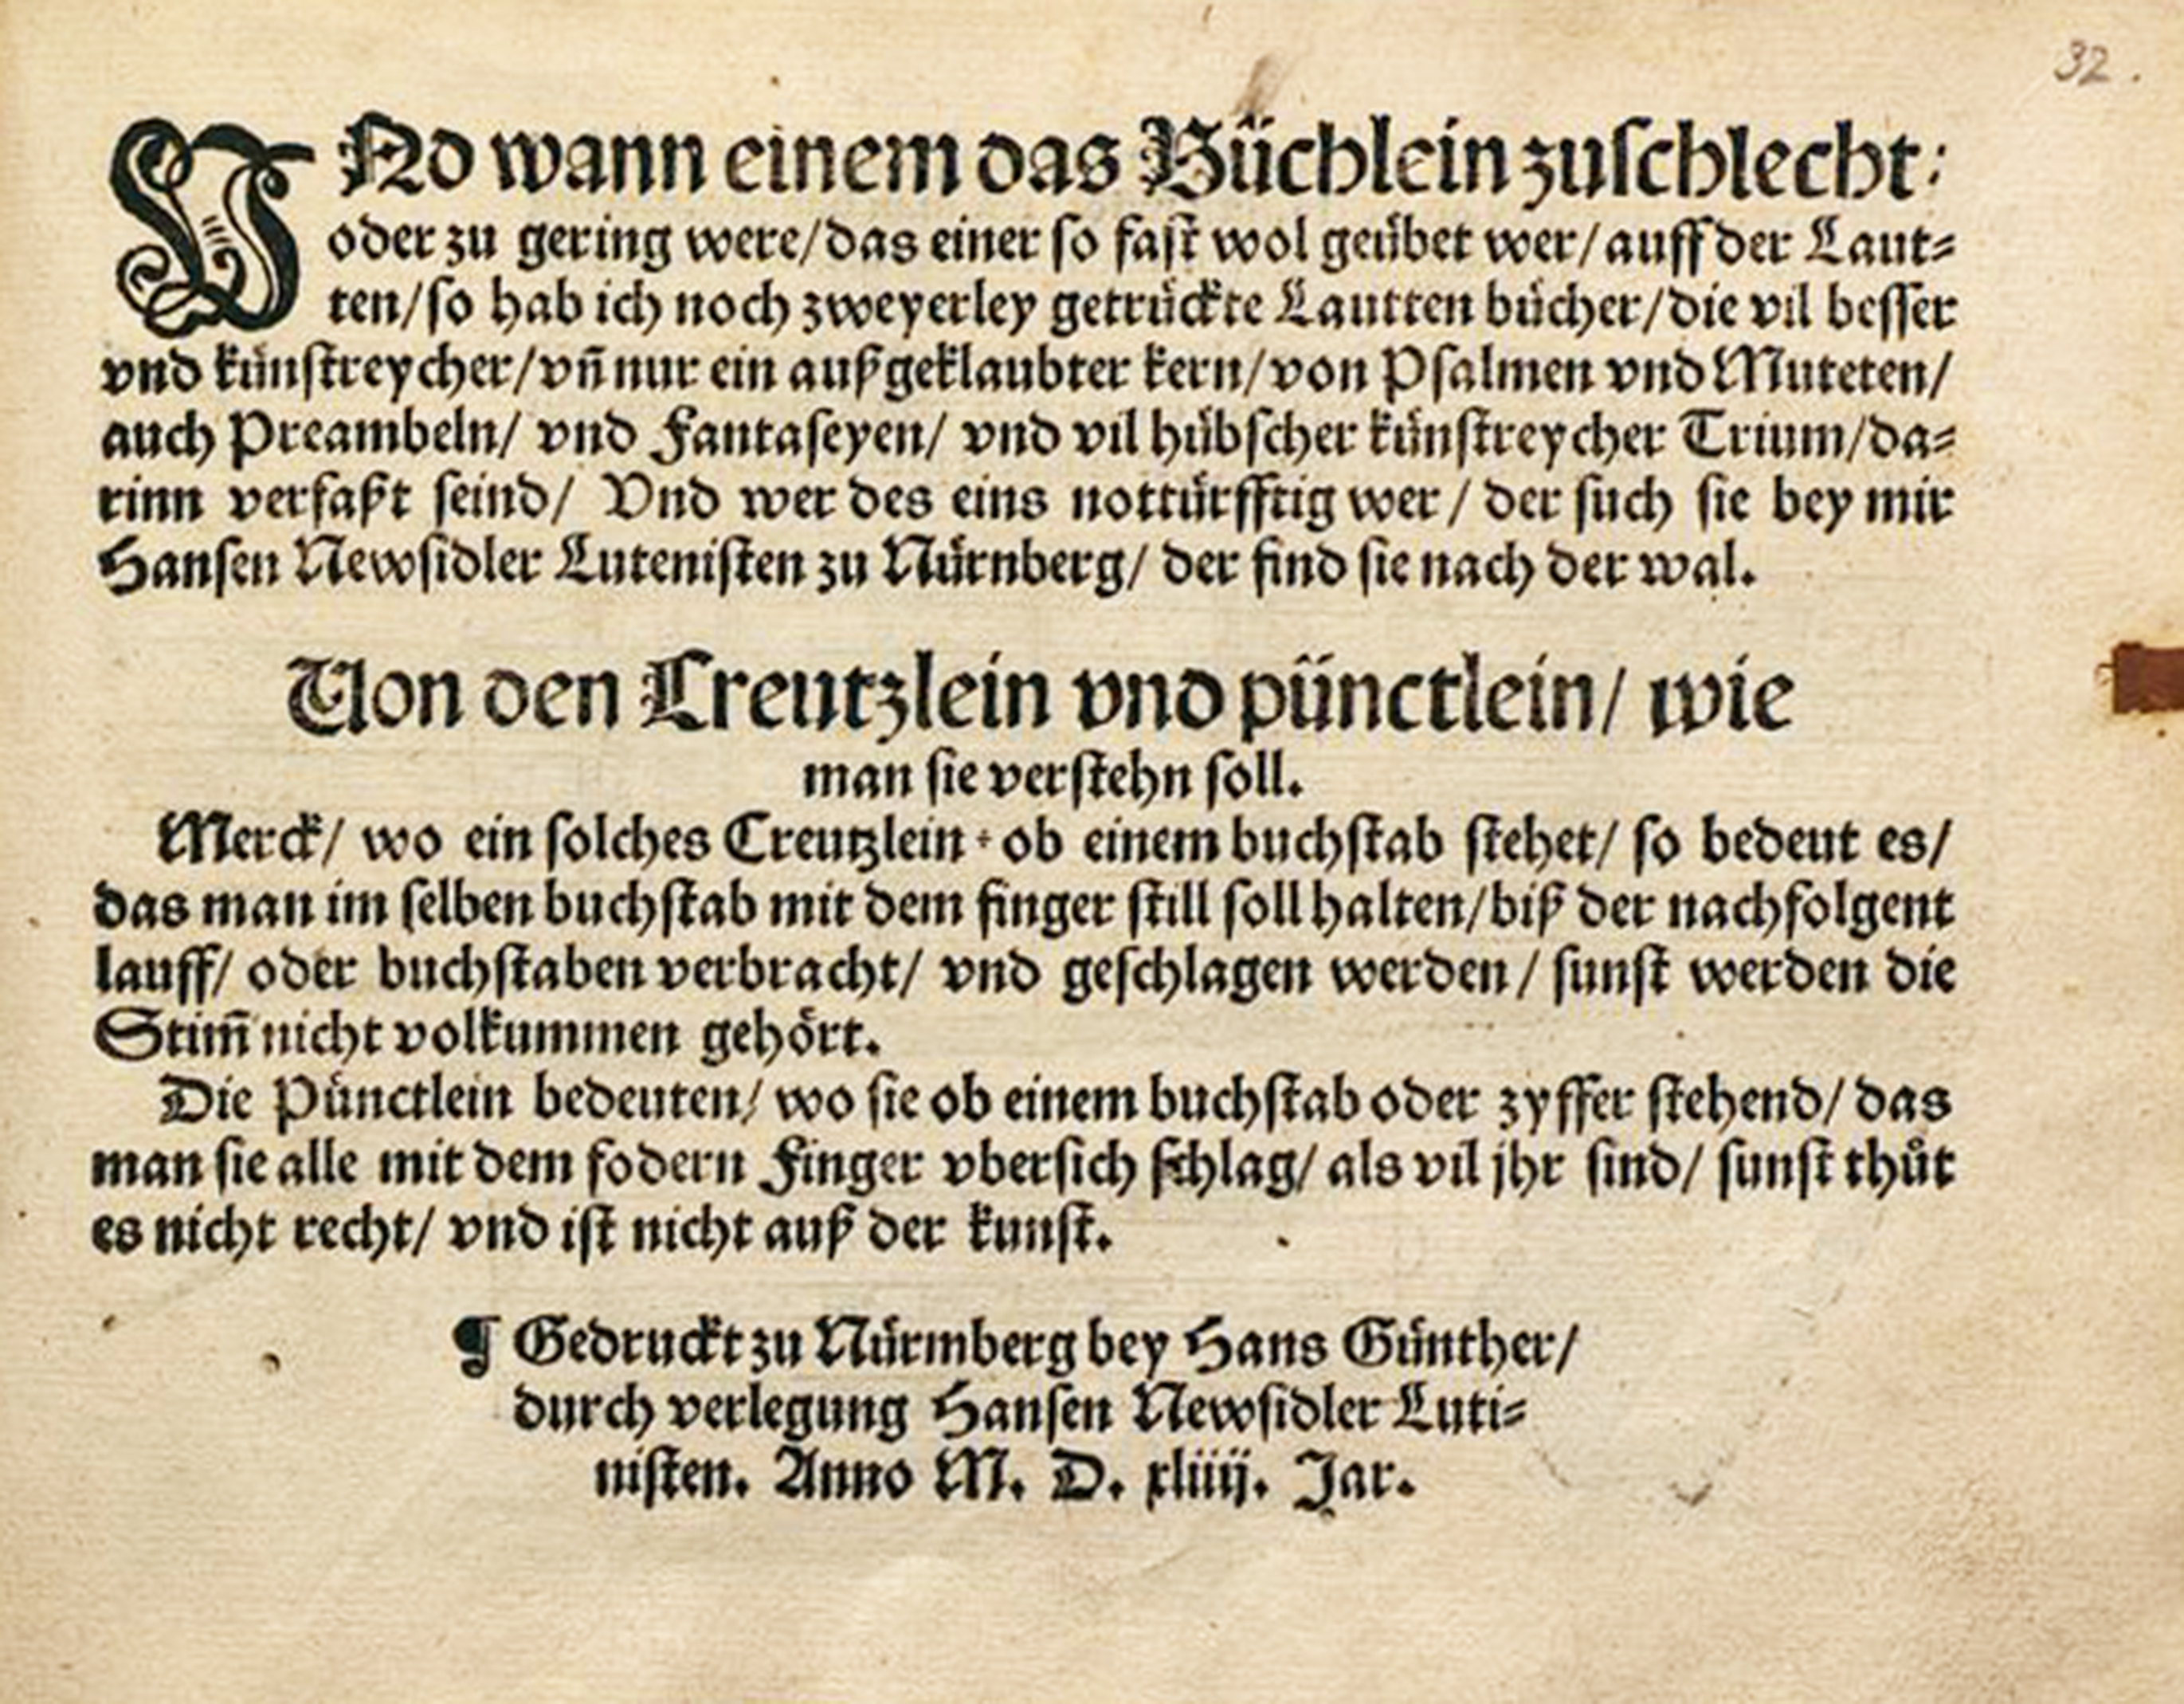 32.
VNd wann einem das Büchlein zuſchlecht/
oder zu gering were/das einer ſo faſt wol geübet wer/auff der Laut⸗
ten/ſo hab ich noch zweyerley getrückte Lautten bücher/die vil beſſer
vnd künſtreycher/vñ nur ein außgeklaubter kern/von Pſalmen vnd Muteten/
auch Preambeln/ vnd Fantaſeyen/ vnd vil hübſcher künſtreycher Trium/da⸗
rinn verfaßt ſeind/ Vnd wer des eins nottürfftig wer/ der ſuch ſie bey mir
Hanſen Newſidler Luteniſten zu Nürnberg/ der find ſie nach der wal.
Von den Creutzlein vnd pünctlein/ wie
man ſie verſtehn ſoll.
Merck/ wo ein ſolches Creutzlein + ob einem buchſtab ſtehet/ ſo bedeut es/
das man im ſelben buchſtab mit dem finger ſtill ſoll halten/biß der nachfolgent
lauff/ oder buchſtaben verbracht/ vnd geſchlagen werden/ ſunſt werden die
Stim̄ nicht volkummen gehört.
Die Pünctlein bedeuten/ wo ſie ob einem buchſtab oder zyffer ſtehend/ das
man ſie alle mit dem fodern Finger vberſich ſchlag/ als vil jhr ſind/ ſunſt thůt
es nicht recht/ vnd iſt nicht auß der kunſt.
¶ Gedruckt zu Nürmberg bey Hans Günther/
durch verlegung Hanſen Newſidler Luti⸗
niſten. Anno M. D. xliiij. Jar.